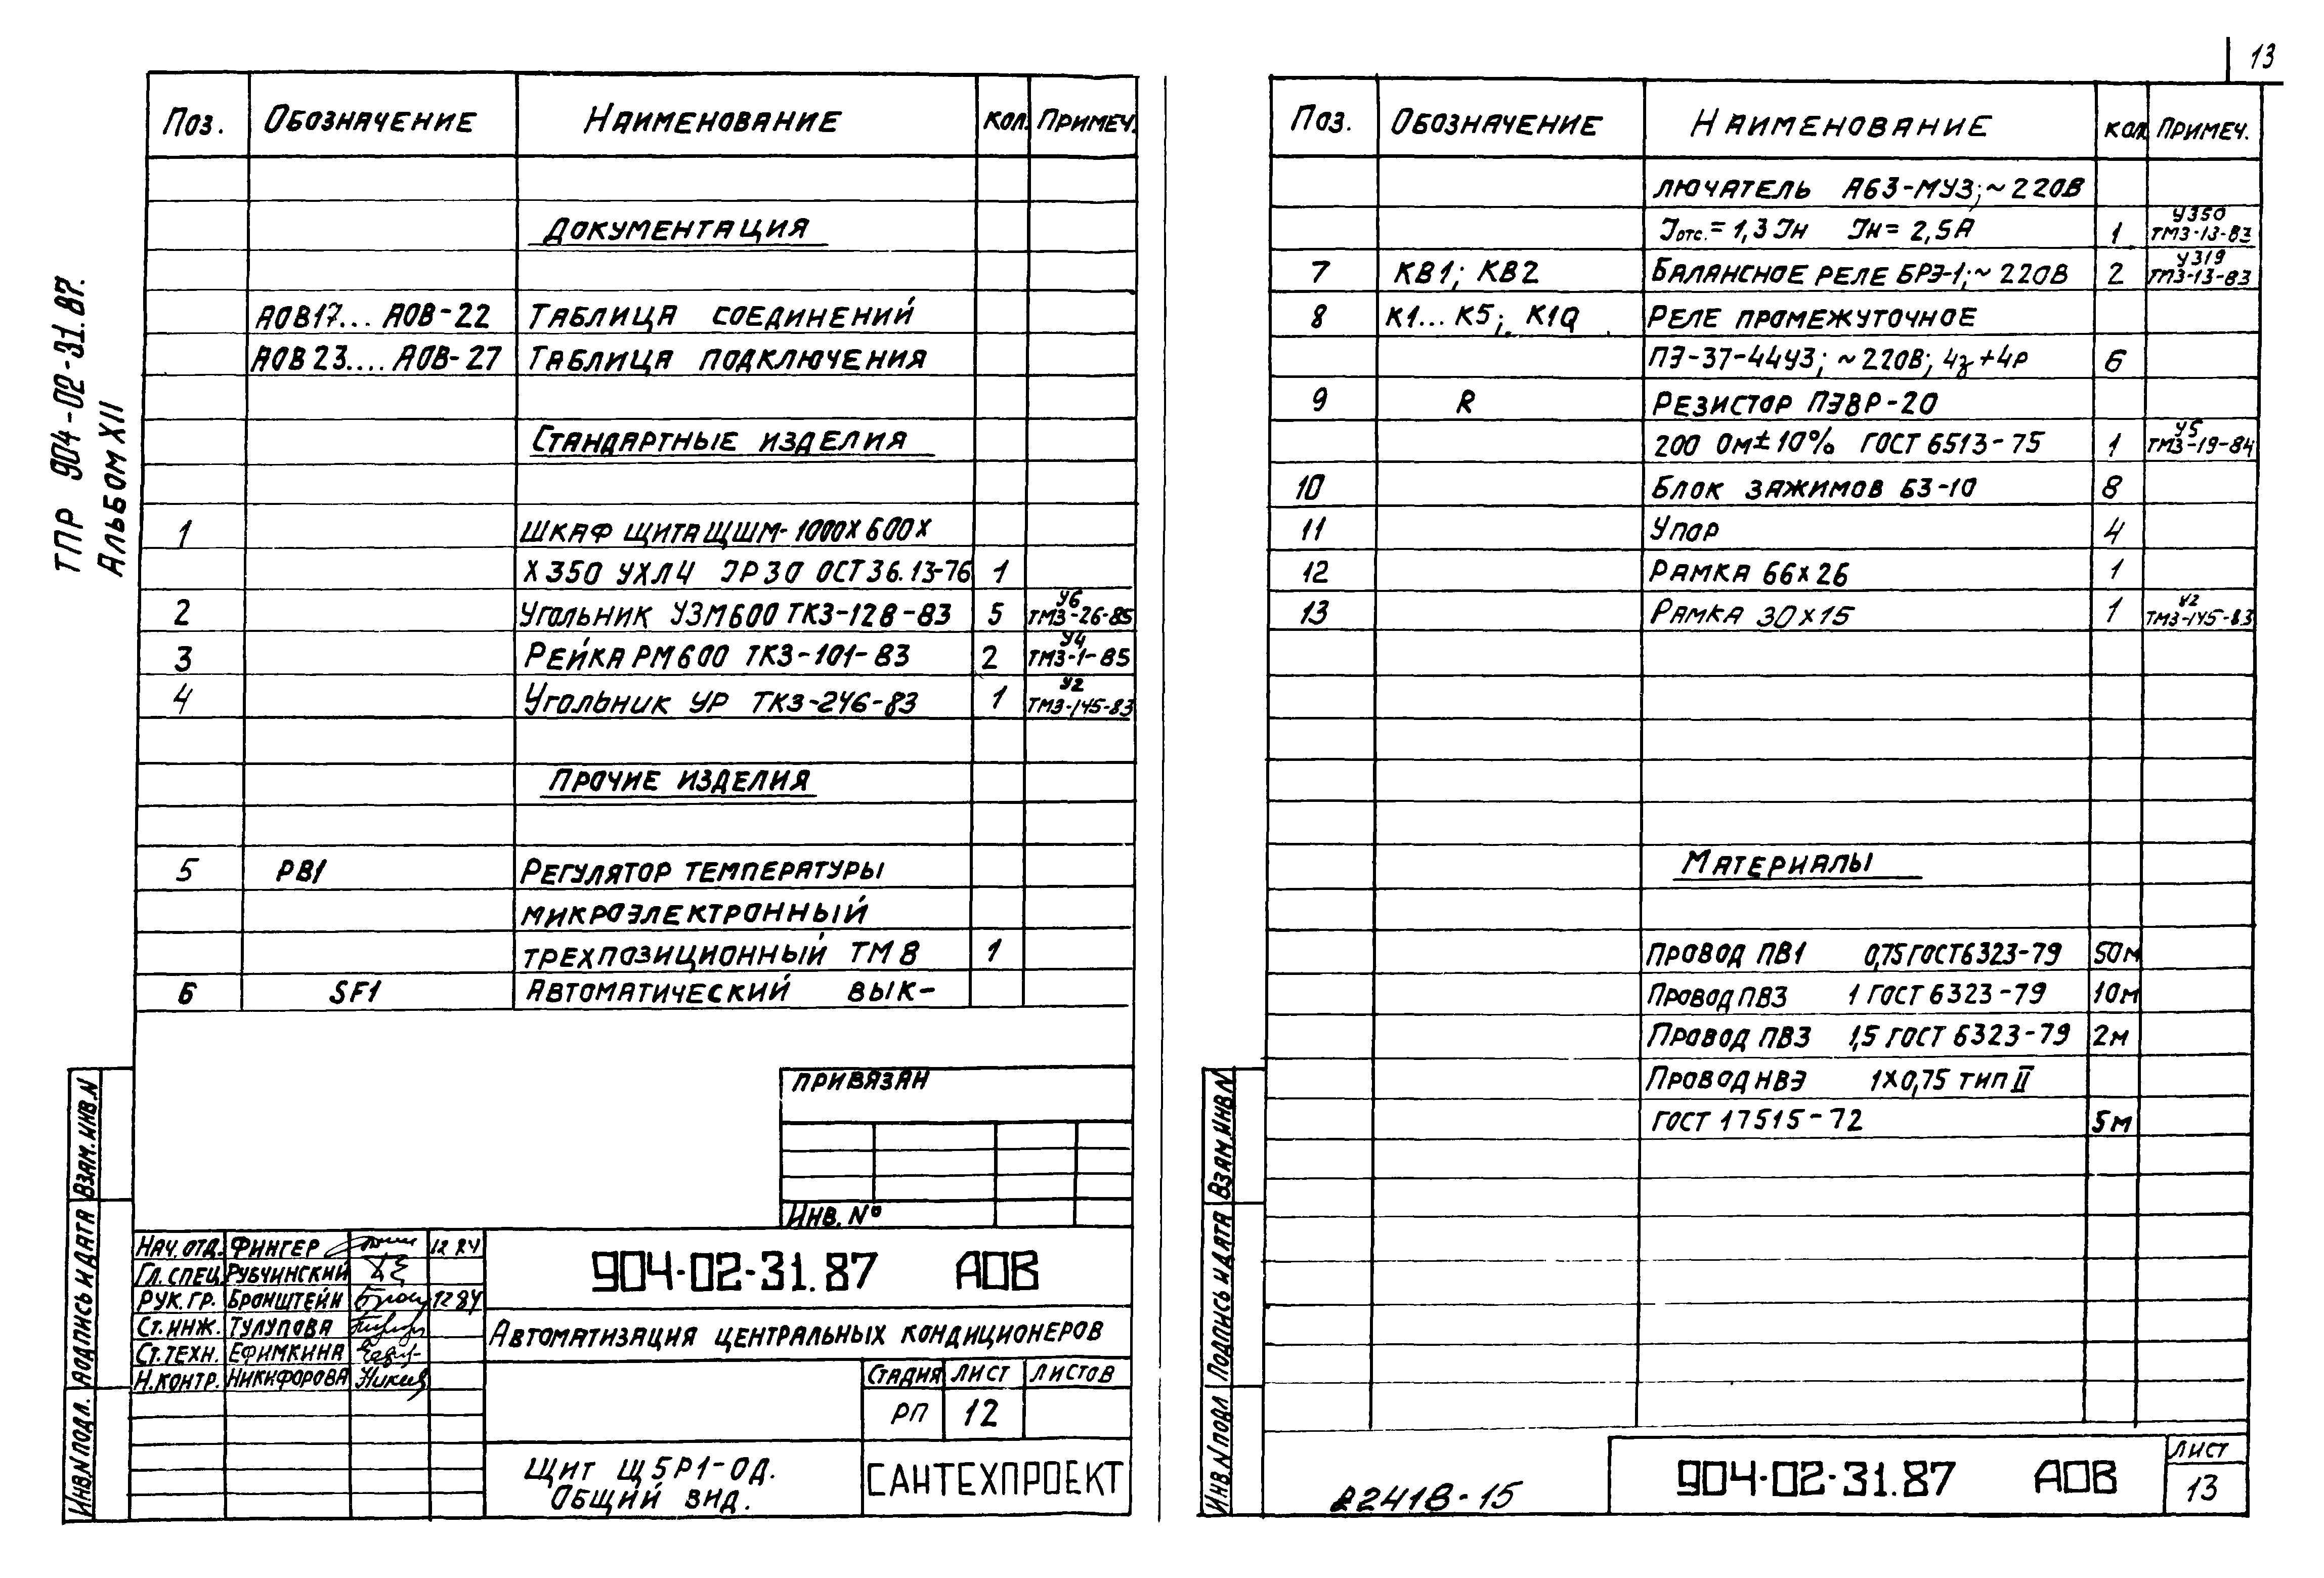 13
ТПР 904-02-31.87.
Альбом XII
Поз. Обозначение Наименование кол. Примеч.
Документация
АОВ17... АОВ-22 Таблица соединений
АОВ23.... АОВ-27 Таблица подключения
Стандартные изделия
1 Шкаф щита ЩШМ-1000х600х
х350 УХЛ4 IP30 ОСТ36.13-76 1
2 Угольник УЗМ600 ТКЗ-128-83 5 У6 ТМЗ-26-85
3 Рейка РМ600 ТКЗ-101-83 2 У4 ТМЗ-1-85
4 Угольник УР ТКЗ-246-83 1 У2 ТМЗ-145-83
Прочие изделия
5 РВ1 Регулятор температуры
микроэлектронный
трехпозиционный ТМ8 1
6 SF1 Автоматический вык-
Привязан
Инв. №
Нач. отд. Фингер 12 84
Гл. спец. Рубчинский
Рук. гр. Бронштейн 12 84
Ст. инж. Тулупова
Ст. техн. Ефимкина
Н. контр. Никифорова
904-02-31.87 АОВ
Автоматизация центральных кондиционеров
Стадия Лист Листов
РП 12
Щит Щ5Р1-ОД.
Общий вид.
САНТЕХПРОЕКТ
Взам. инв. N
Подпись и дата
Инв. N подл.
Поз. Обозначение Наименование кол. Примеч.
лючатель А63-МУ3; ~220В
Iотс. = 1,3 Iн Iн = 2,5А 1 У350 ТМЗ-13-83
7 КВ1; КВ2 Балансное реле БРЭ-1; ~220В 2 У319 ТМЗ-13-83
8 К1... К5; К10 Реле промежуточное
ПЭ-37-44У3; ~220В; 4з+4р 6
9 R Резистор ПЭВР-20
200 Ом±10% ГОСТ 6513-75 1 У5 ТМЗ-19-84
10 Блок зажимов БЗ-10 8
11 Упор 4
12 Рамка 66х26 1
13 Рамка 30х15 1 У2 ТМЗ-145-83
Материалы
Провод ПВ1 0,75 ГОСТ 6323-79 50м
Провод ПВ3 1 ГОСТ 6323-79 10м
Провод ПВ3 1,5 ГОСТ 6323-79 2м
Провод НВЭ 1х0,75 тип II
ГОСТ 17515-72 5м
Взам. инв. N
Подпись и дата
Инв. N подл
22418-15
904-02-31.87 АОВ
Лист
13